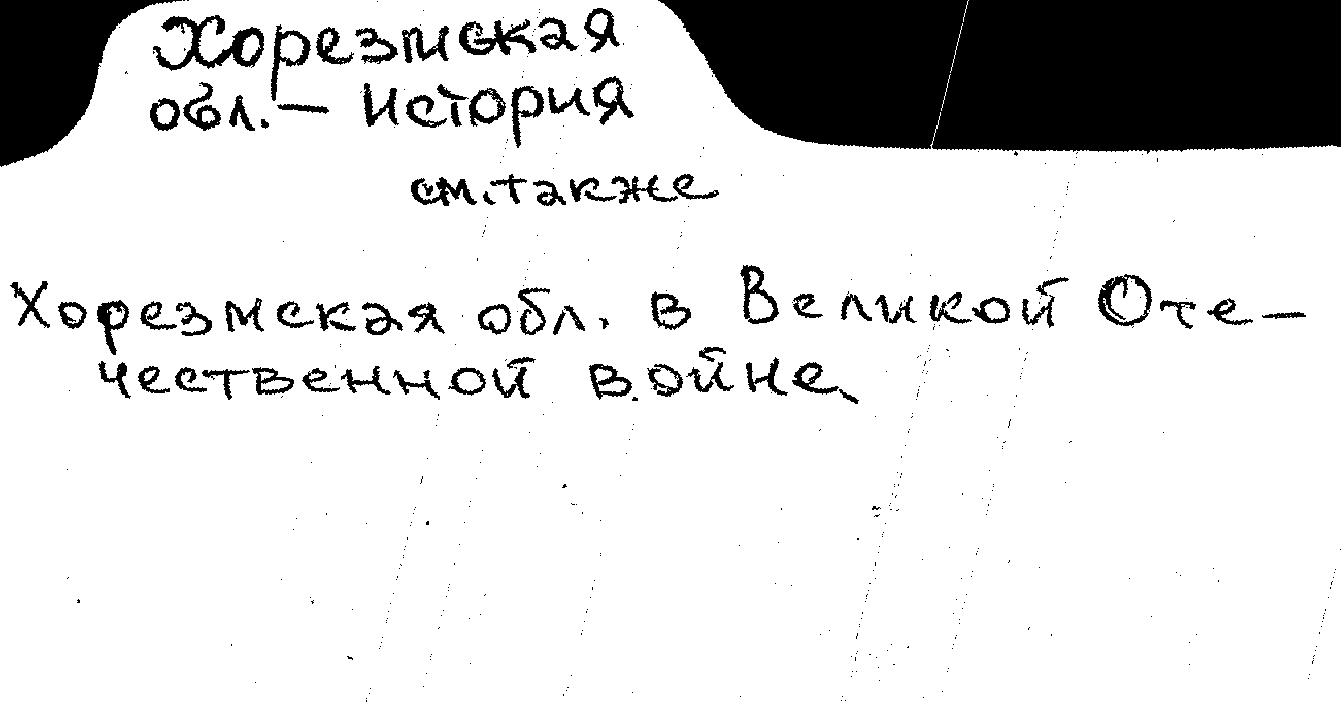 Хорезмская
обл. — История
см. также
Хорезмская обл. в Великой Оте-
чественной войне